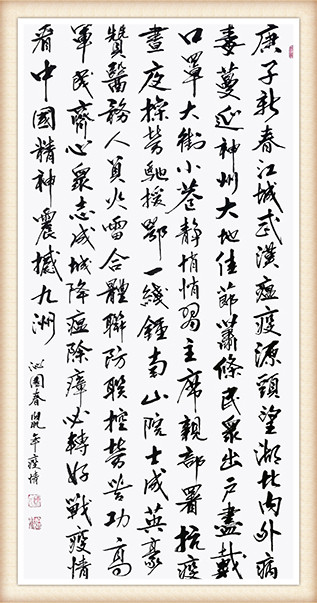 庚子新春江城武漢瘟疫源頭望湖北内外病
毒蔓延神州大地佳節蕭條民衆出戶盡戴
口罩大街小巷静悄悄習主席親部署抗疫
晝夜操勞馳援鄂一綫鍾南山院士成英豪
贊醫務人員火雷合體聯防联控勞苦功高
軍民齊心衆志成城降瘟除瘴必轉好戰疫情
看中國精神震撼九洲
沁園春鼠年疫